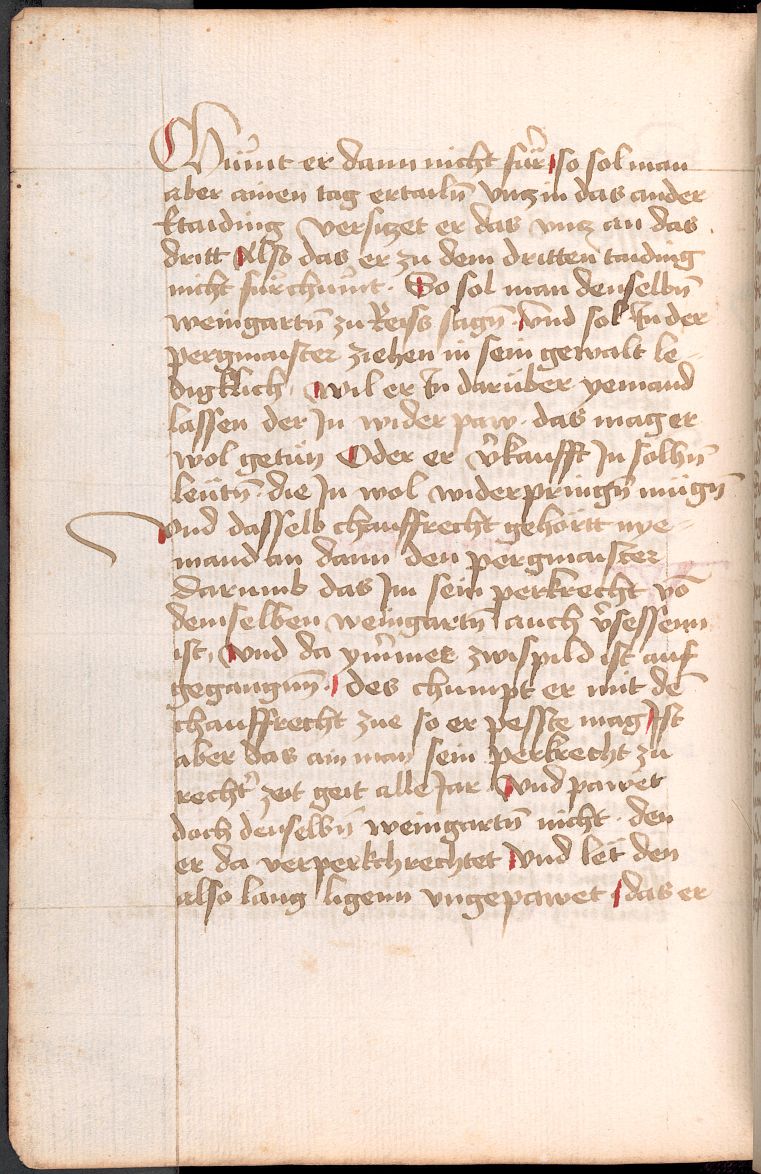 Chumt er dann nicht für so sol man
aber ainen tag ertailn̄ vnz in das ander
ktaiding versiczet er das vnz an das
dritt Also das er zu dem dritten taiding
nicht fürchumt. So sol man denselbn̄
weingartn̄ zu Reiss sagn̄. Vnd sol In der
pergmaister ziehen in sein gewalt le-
digklich, wil er In darüber yemand
lassen der In wider paw. das mag er
wol getün Oder er v̄kaufft In solhn̄
leütn̄. die In wol widerpringn̄ mügn̄
Vnd dasselb chauffrecht gehört nye-
mand an dann den pergmaister
darumb das Im sein perkrecht vō
demselben weingartn̄ auch v̄sessenn
ist, Vnd da ymmer zwispild ist auf
gegangnn. des chumpt er mit dē
chauffrecht zue so er peste mag Ist
aber das ain man sein perkrecht zu
rechter zeit geit alle Jar. Vnd pawet
doch denselbn̄ weingartn̄ nicht. den
er da verperkchrechtet Vnd let den
also lang ligenn vngepawet, das er